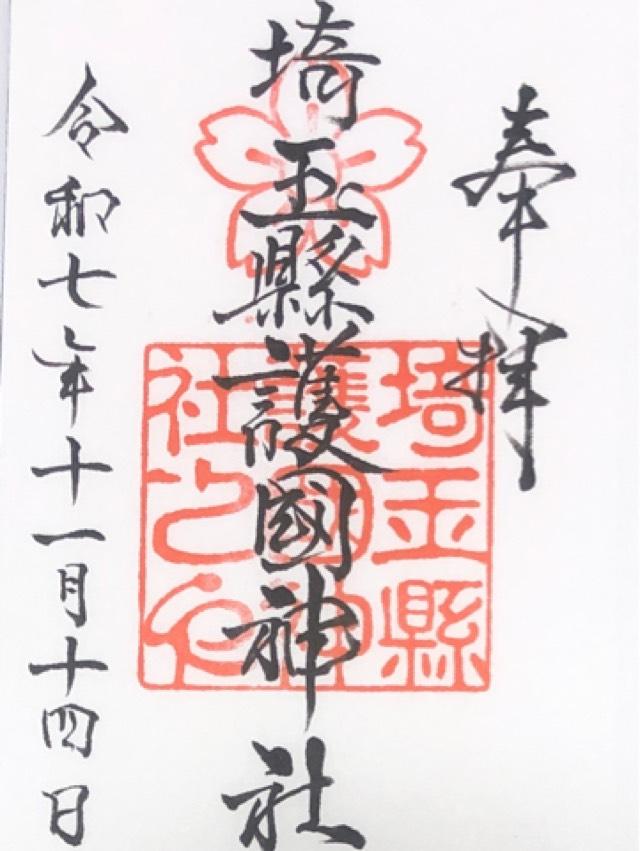 奉拝
埼玉縣護國神社
令和七年十一月十四日
埼玉縣
護國神
社之印